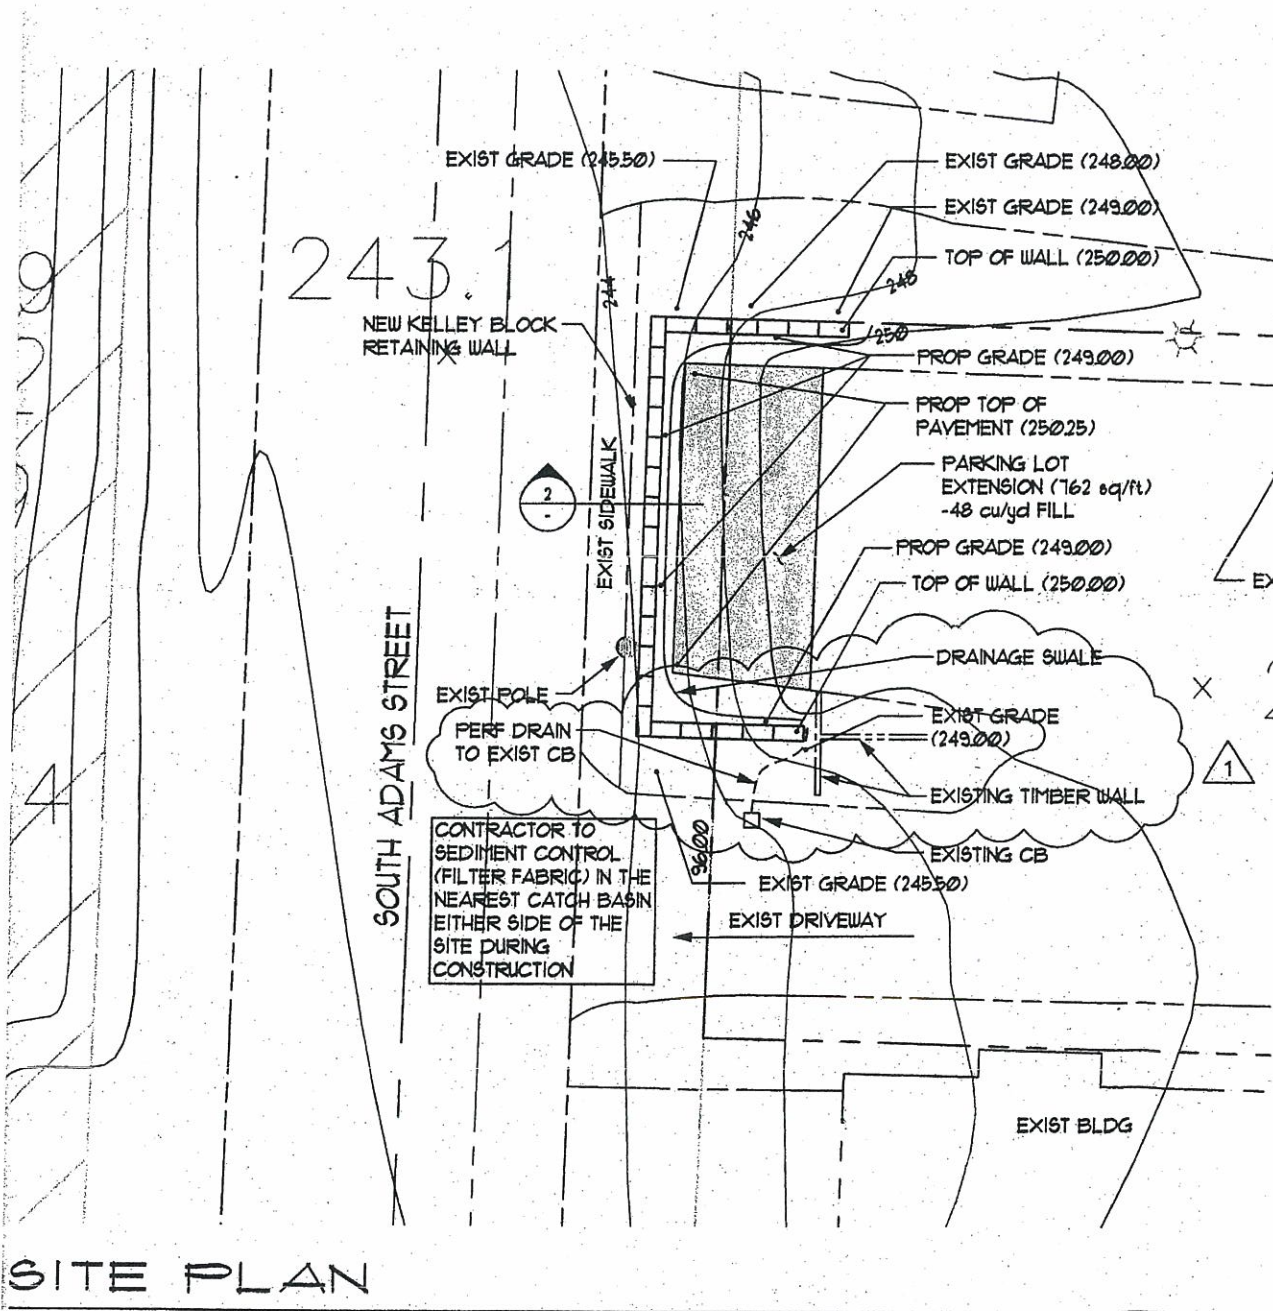 EXIST GRADE (245.50)
EXIST GRADE (248.00)
EXIST GRADE (249.00)
TOP OF WALL (250.00)
246
248
244
250
243.1
NEW KELLEY BLOCK
RETAINING WALL
PROP GRADE (249.00)
PROP TOP OF
PAVEMENT (250.25)
PARKING LOT
EXTENSION (762 sq/ft)
-48 cu/yd FILL
2
-
EXIST SIDEWALK
PROP GRADE (249.00)
TOP OF WALL (250.00)
DRAINAGE SWALE
SOUTH ADAMS STREET
EXIST POLE
PERF DRAIN
TO EXIST CB
EXIST GRADE
(249.00)
1
EXISTING TIMBER WALL
EXISTING CB
4
CONTRACTOR TO
SEDIMENT CONTROL
(FILTER FABRIC) IN THE
NEAREST CATCH BASIN
EITHER SIDE OF THE
SITE DURING
CONSTRUCTION
96.00
EXIST GRADE (245.50)
EXIST DRIVEWAY
EXIST BLDG
SITE PLAN